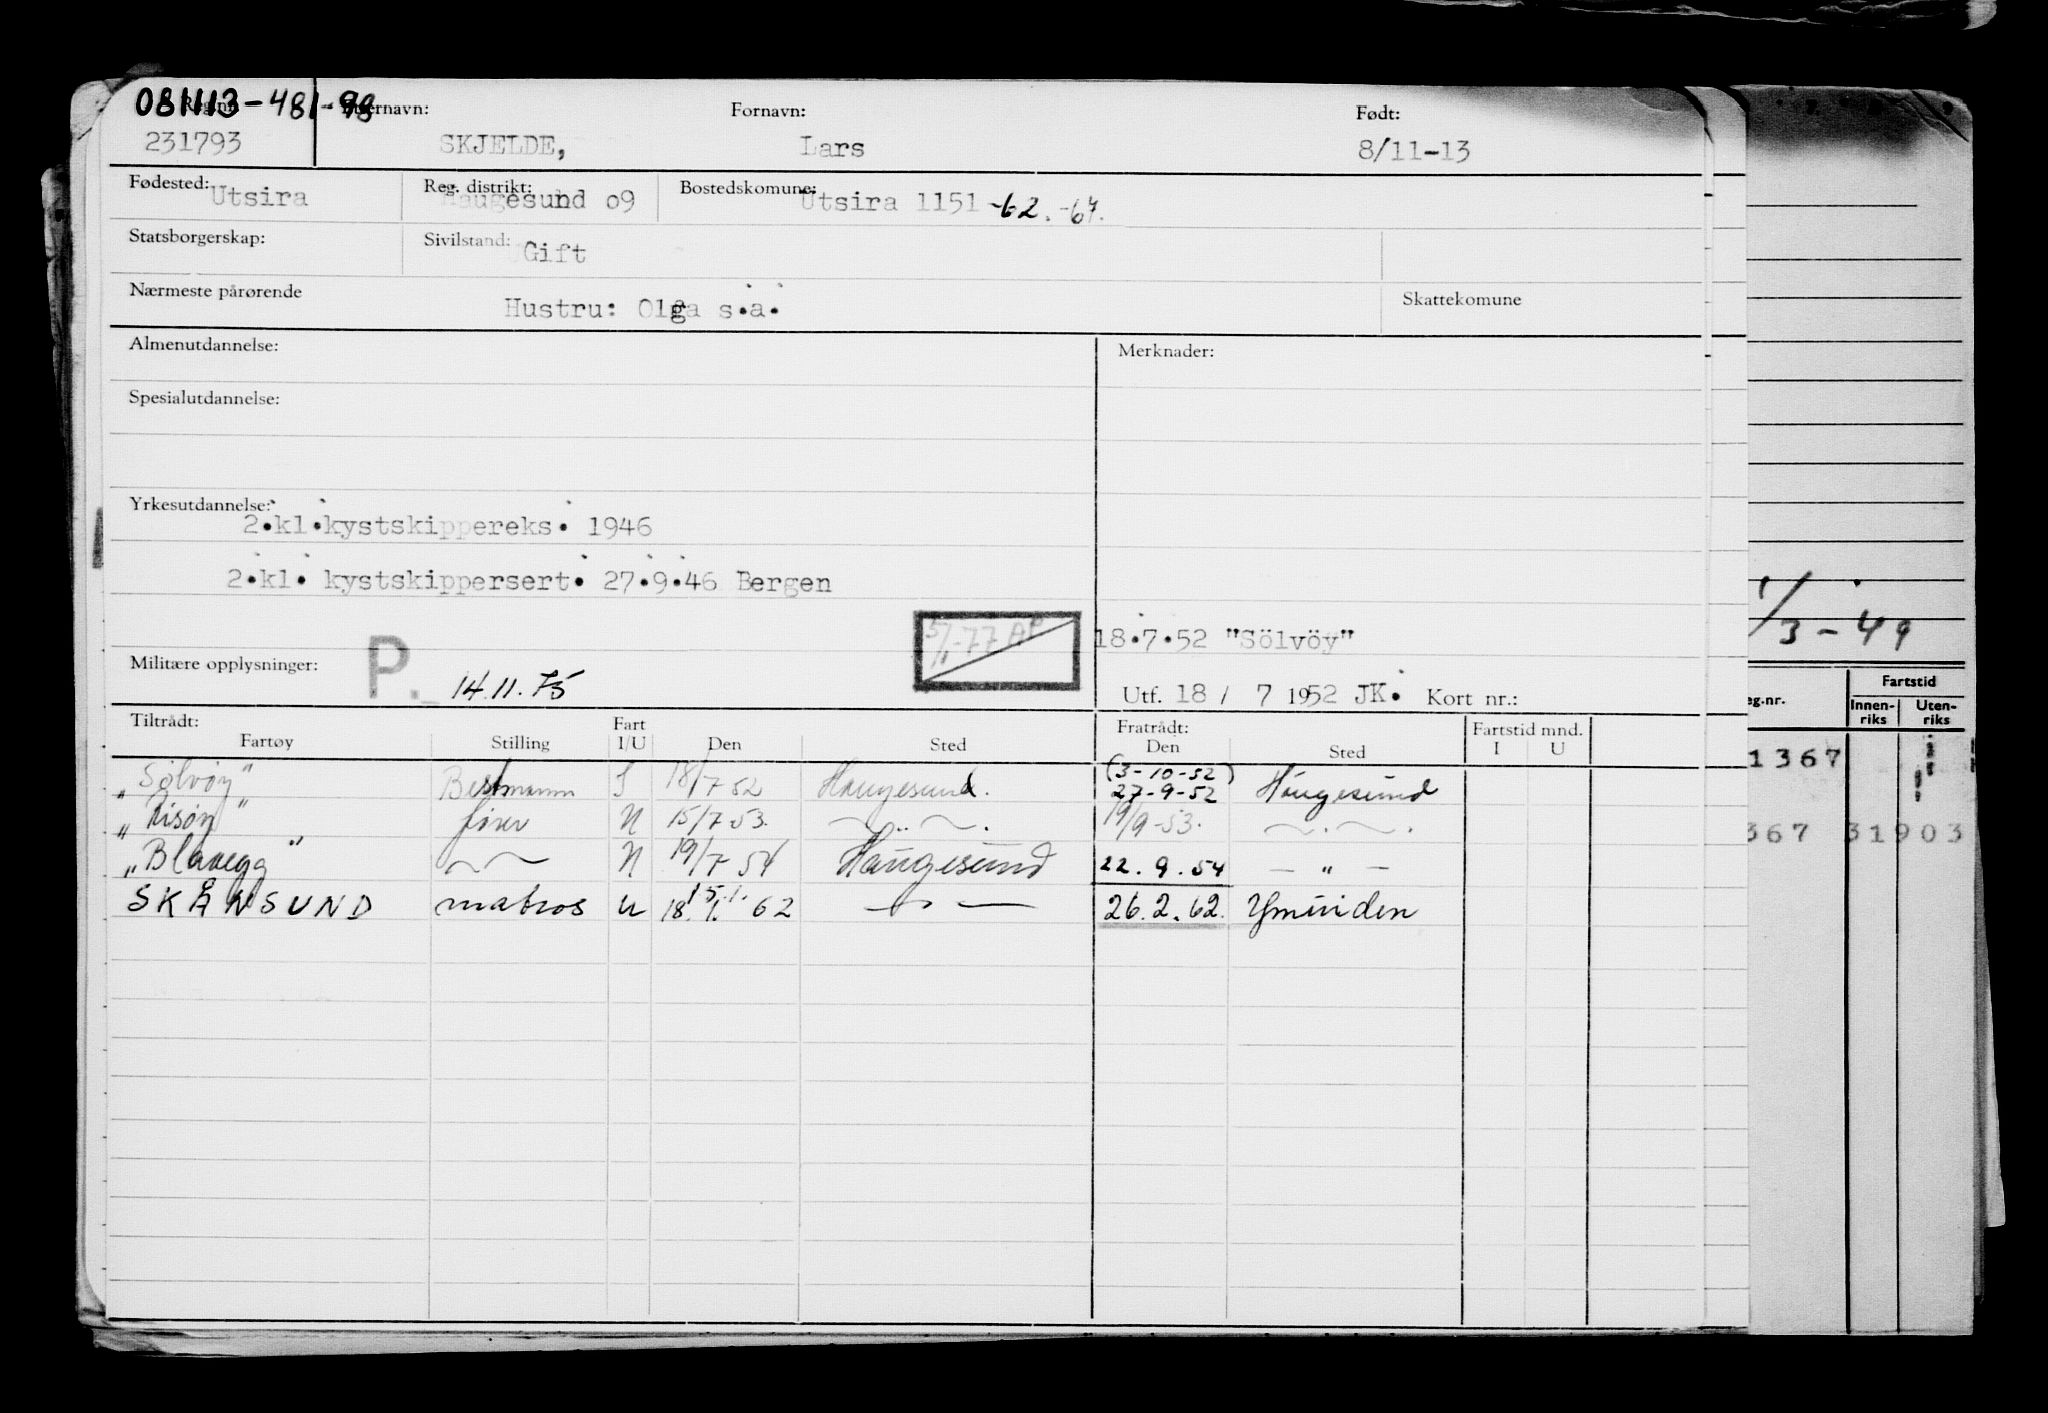 081113-481-98
Reg.nr. Etternavn: Fornavn: Født:
231793 SKJELDE, Lars 8/11-13
Fødested: Utsira Reg. distrikt: Haugesund o9 Bostedskomune: Utsira 1151 -62. -67.
Statsborgerskap: Sivilstand: Gift
Nærmeste pårørende Hustru: Olga s.a. Skattekomune
Almenutdannelse: Merknader:
Spesialutdannelse:
Yrkesutdannelse: 2.kl.kystskippereks. 1946
2.kl. kystskippersert. 27.9.46 Bergen
1/3-49
18.7.52 "Sölvöy"
Militære opplysninger: P. 14.11.75
Utf. 18 / 7 1952 JK. Kort nr.:
Tiltrådt: Fart Fratrådt: Fartstid mnd.
Fartøy Stilling I/U Den Sted Den Sted I U
"Sølvøy" Bestmann I 18/7 52 Haugesund. (3-10-52) 27-9-52 Haugesund
fører N 15/7-53. 19/9-53.
"Blaaegg" N 19/7 54 Haugesund 22.9.54 — " —
SKÅNSUND matros U 18.1. 62 15.1. 26.2.62. Ymuiden
eg.nr. Fartstid
Innen-riks Uten-riks
1367
367 31903